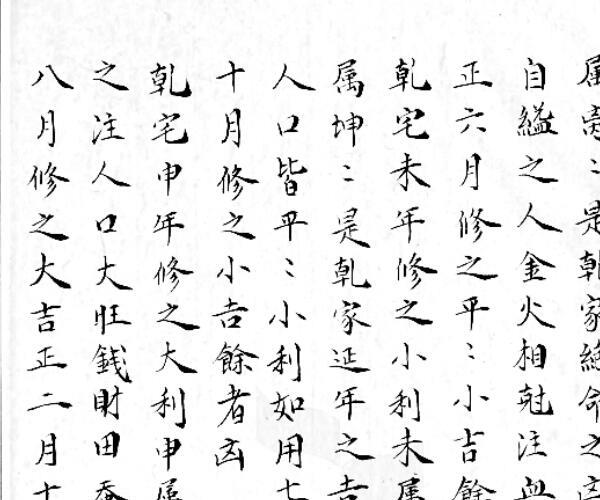 属离〻是乾家絶命之凶
自縊之人金火相尅注血
正六月修之平〻小吉餘
乾宅未年修之小利未属
属坤〻是乾家延年之吉
人口皆平〻小利如用七
十月修之小吉餘者凶
乾宅申年修之大利申属
之注人口大旺錢財田蚕
八月修之大吉正二月十